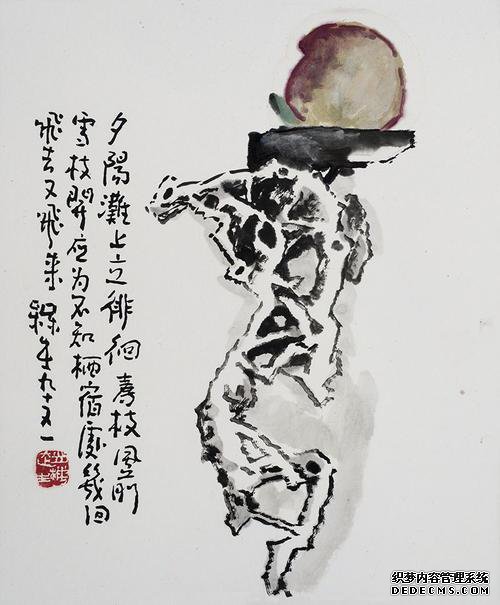 夕陽灘上立徘徊枝風前
雪枝開应为不知栖宿處幾回
飛去又飛來年九十又一
织梦内容管理系统
DEDECMS.COM